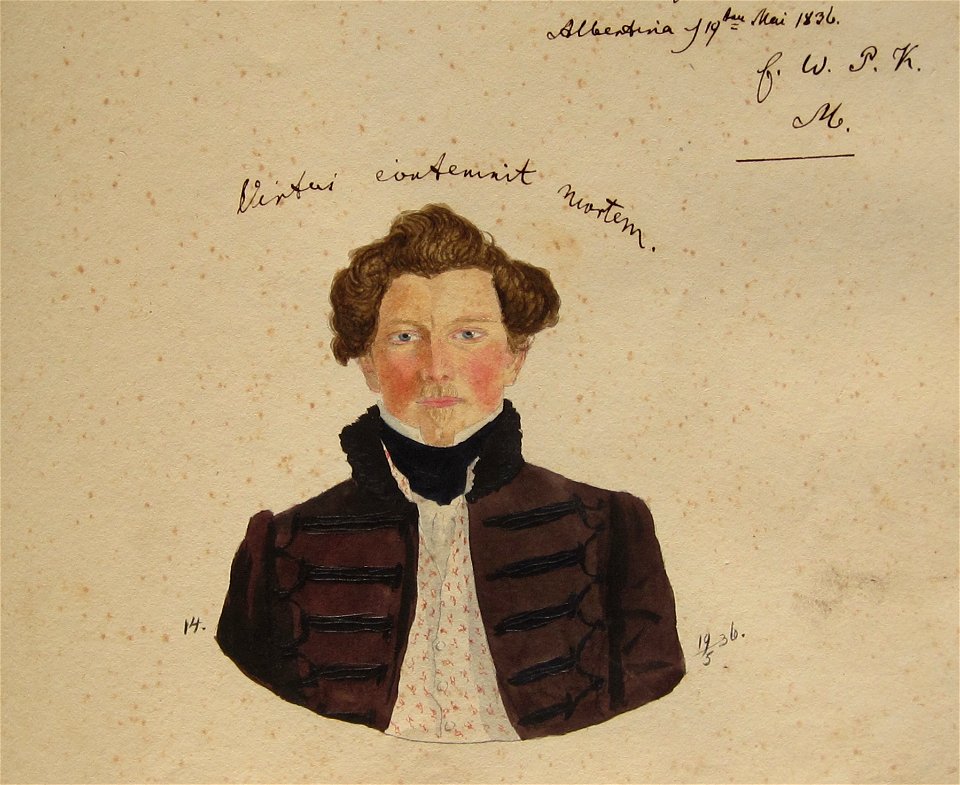 Albertina d 19ten Mai 1836.
f. W. P. K.
M.
Virtus contemnit mortem.
14.
19/5 36.